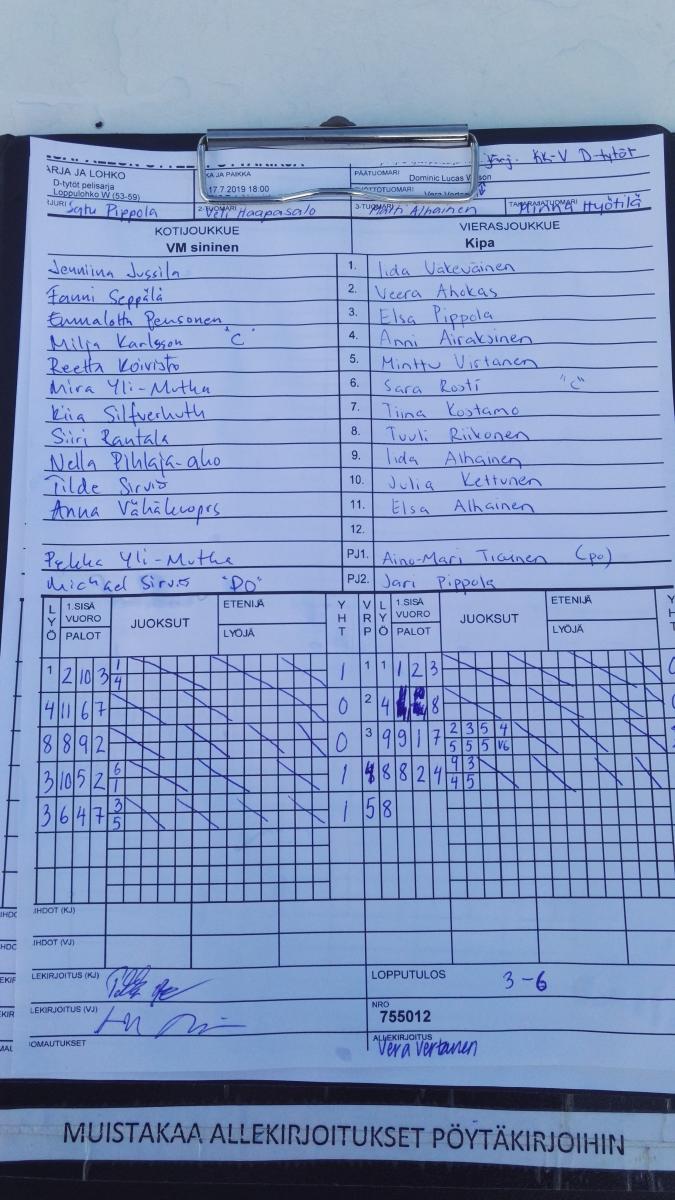 järj. KK-V D-tytöt
ARJA JA LOHKO
KA JA PAIKKA
PÄÄTUOMARI
D-tytöt pelisarja
Loppulohko W (53-59)
17.7.2019 18:00
Dominic Lucas
Satu Pippola
2-TUOMARI Veli Haapasalo
3-TUOMARI Matti Alhainen
Minna Hyötilä
KOTIJOUKKUE
VIERASJOUKKUE
VM sininen
Kipa
Jenniina Jussila 1. Iida Vakeväinen
Fanni Seppälä 2. Veera Ahokas
Emmalotta Pensonen 3. Elsa Pippola
Milja Karlsson "C" 4. Anni Airaksinen
Reetta Koivisto 5. Minttu Virtanen
Mira Yli-Mutka 6. Sara Rosti "C"
Kiia Silfverhuth 7. Tiina Kostamo
Siiri Rantala 8. Tuuli Riikonen
Nella Pihlaja-aho 9. Iida Alhainen
Tilde Sirviö 10. Julia Kettunen
Anna 11. Elsa Alhainen
12.
Pekka Yli-Mutka PJ1. Aino-Mari Tiainen (po)
Michael Sirviö "PO" PJ2. Jari Pippola
LYÖ 1.SISÄ VUORO PALOT JUOKSUT ETENIJÄ LYÖJÄ YHT VRP LYÖ 1.SISÄ VUORO PALOT JUOKSUT ETENIJÄ LYÖJÄ
1 2 10 3 1 4 1 1 1 1 2 3
4 11 6 7 0 2 4 8
8 8 9 2 0 3 9 9 1 7 2 3 5 4 5 5 5 V6
3 10 5 2 6 1 1 4 8 8 2 4 9 3 4 5
3 6 4 7 3 5 1 5 8
IHDOT (KJ)
IHDOT (VJ)
LEKIRJOITUS (KJ)
LOPPUTULOS 3-6
LEKIRJOITUS (VJ)
NRO
755012
OMAUTUKSET
ALLEKIRJOITUS
Vera Vertanen
MUISTAKAA ALLEKIRJOITUKSET PÖYTÄKIRJOIHIN